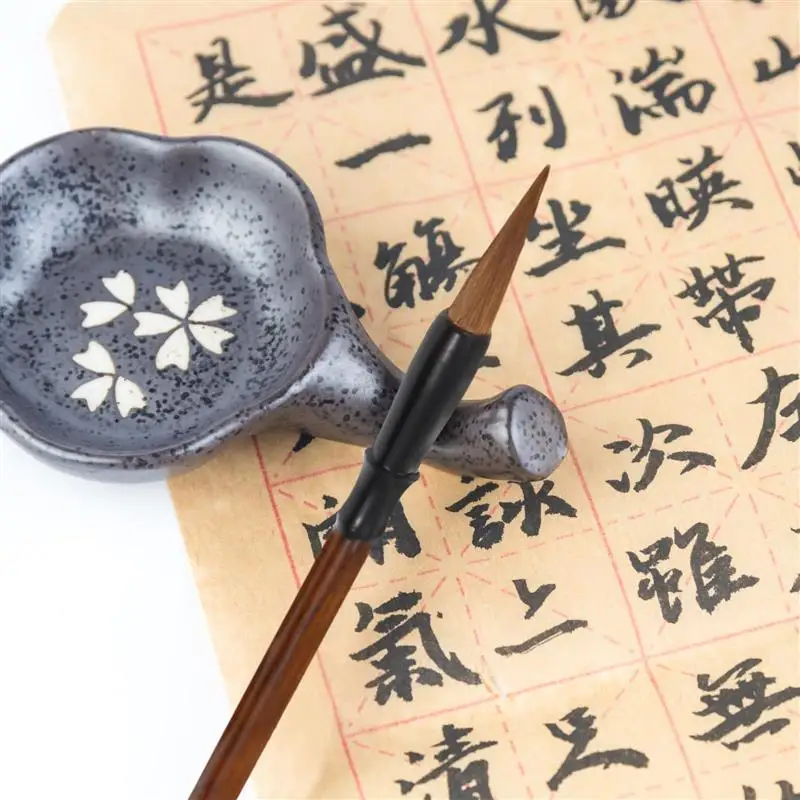 山
湍映帶左
水列坐其次雖無
盛一觴詠上足
是氣清